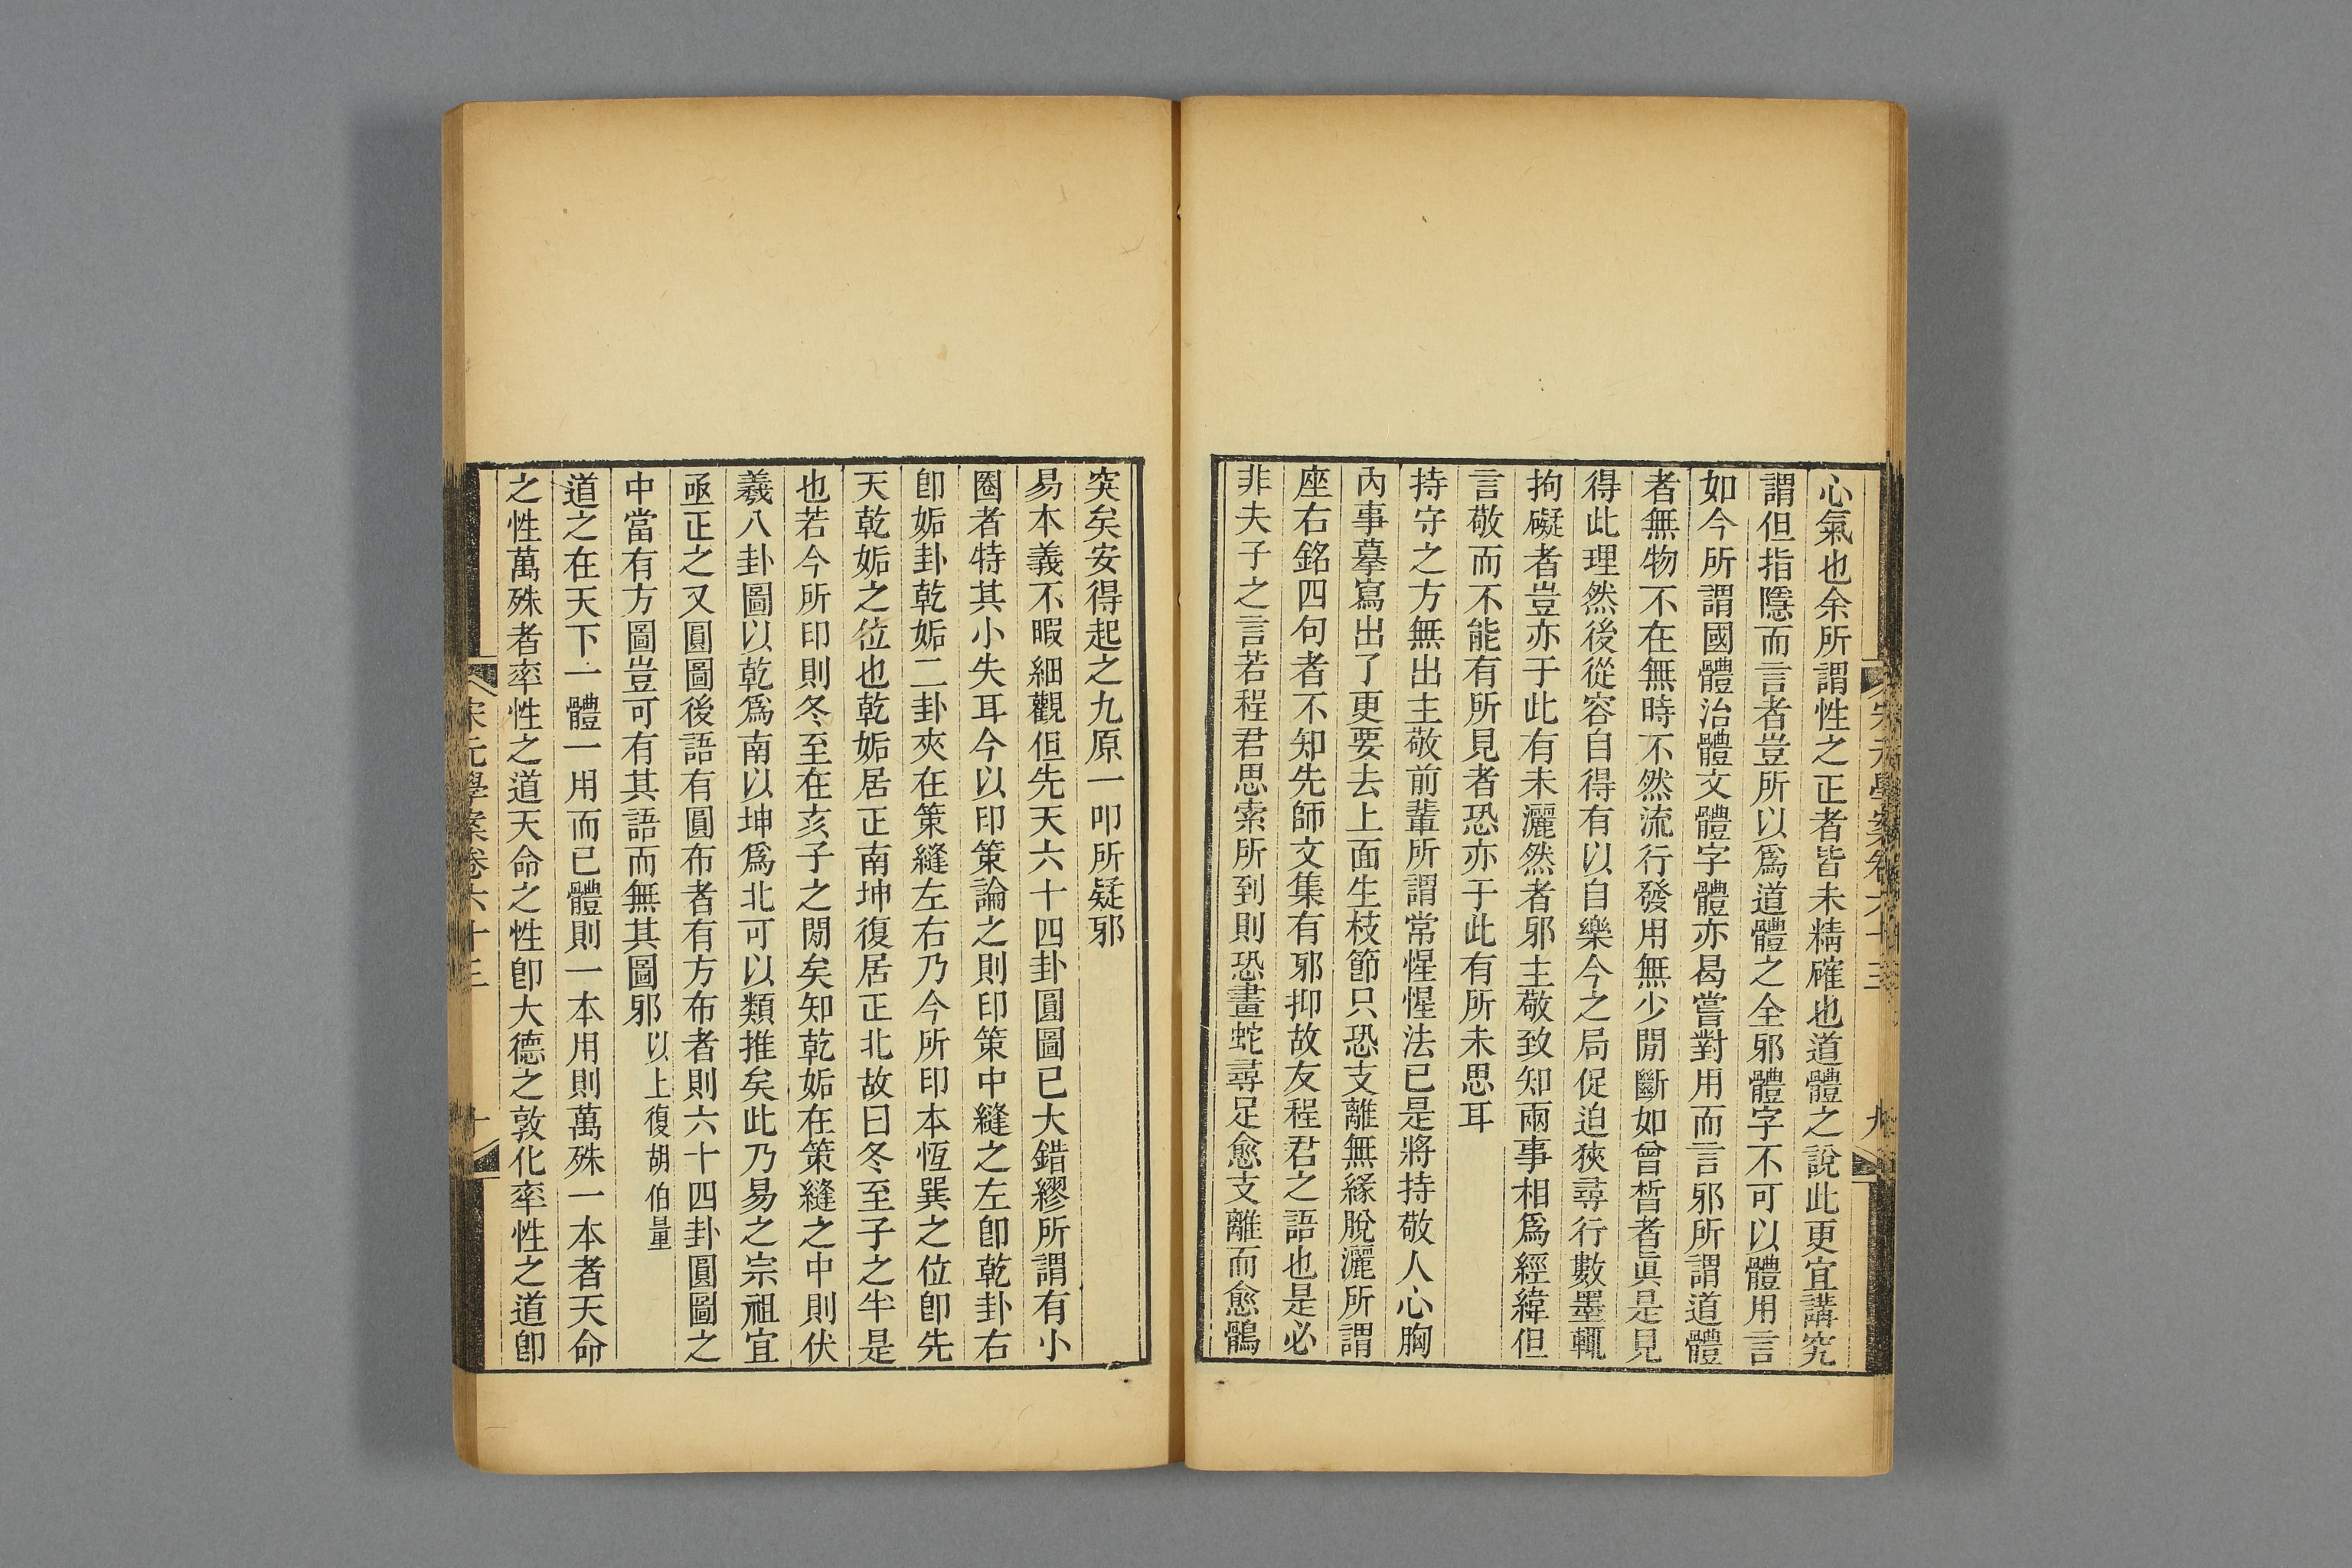 心氣也余所謂性之正者皆未精確也道體之說此更宜講究
謂但指隱而言者豈所以爲道體之全邪體字不可以體用言
如今所謂國體治體文體字體亦曷嘗對用而言邪所謂道體
者無物不在無時不然流行發用無少閒斷如曾晳者眞是見
得此理然後從容自得有以自樂今之局促迫狹尋行數墨輒
拘礙者豈亦于此有未灑然者邪主敬致知兩事相爲經緯但
言敬而不能有所見者恐亦于此有所未思耳
持守之方無出主敬前輩所謂常惺惺法已是將持敬人心胸
內事摹寫出了更要去上面生枝節只恐支離無緣脫灑所謂
座右銘四句者不知先師文集有邪抑故友程君之語也是必
非夫子之言若程君思索所到則恐畫蛇尋足愈支離而愈鶻
宋元學案卷六十三
九
突矣安得起之九原一叩所疑邪
易本義不暇細觀但先天六十四卦圓圖已大錯繆所謂有小
圈者特其小失耳今以印策論之則印策中縫之左卽乾卦右
卽姤卦乾姤二卦夾在策縫左右乃今所印本恆巽之位卽先
天乾姤之位也乾姤居正南坤復居正北故曰冬至子之半是
也若今所印則冬至在亥子之閒矣知乾姤在策縫之中則伏
羲八卦圖以乾爲南以坤爲北可以類推矣此乃易之宗祖宜
亟正之又圓圖後語有圓布者有方布者則六十四卦圓圖之
中當有方圖豈可有其語而無其圖邪以上復胡伯量
道之在天下一體一用而已體則一本用則萬殊一本者天命
之性萬殊者率性之道天命之性卽大德之敦化率性之道卽
宋元學案卷六十三
十